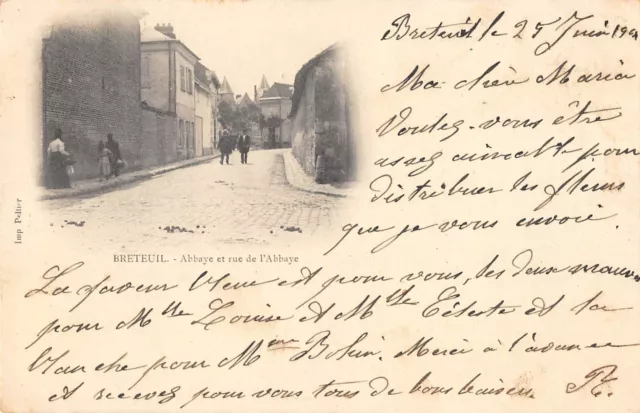 Breteuil le 25 Juin 190
Ma chère Maria
Voulez-vous être
assez aimable pour
distribuer les fleurs
que je vous envoie.
Imp Peltier
BRETEUIL. - Abbaye et rue de l'Abbaye
La faveur bleue est pour vous, les deux mauves
pour Mlle Louise et Mlle Céleste et la
blanche pour Mme Bohin. Merci à l'avance
et recevez pour vous tous de bons baisers.